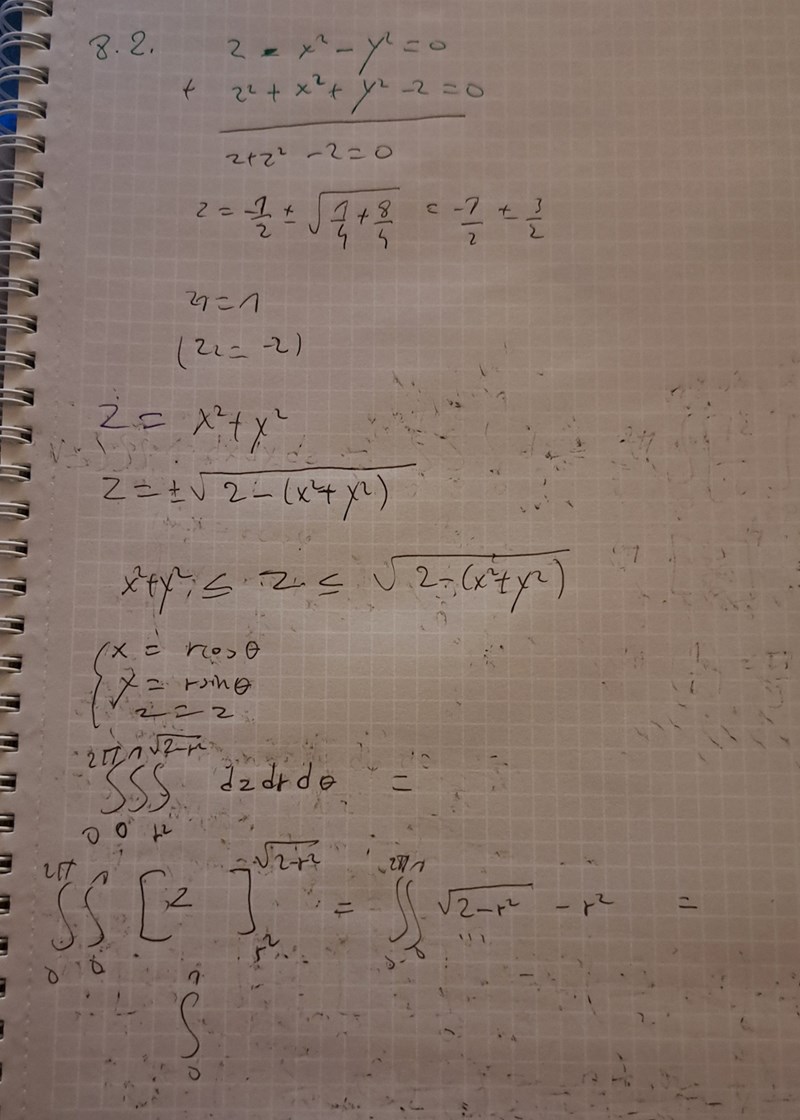 8.2. z - x² - y² = 0
+ z² + x² + y² - 2 = 0
z + z² - 2 = 0
z = -1/2 ± √(1/4 + 8/4) = -1/2 ± 3/2
z₁ = 1
(z₂ = -2)
z = x² + y²
z = ±√(2 - (x² + y²))
x² + y² ≤ z ≤ √(2 - (x² + y²))
{ x = r cos θ
y = r sin θ
z = z
∫₀^2π ∫₀^1 ∫_r²^√(2-r²) dz dr dθ =
∫₀^2π ∫₀^1 [z]_r²^√(2-r²) = ∫₀^2π ∫₀^1 √(2-r²) - r² =
∫₀^1